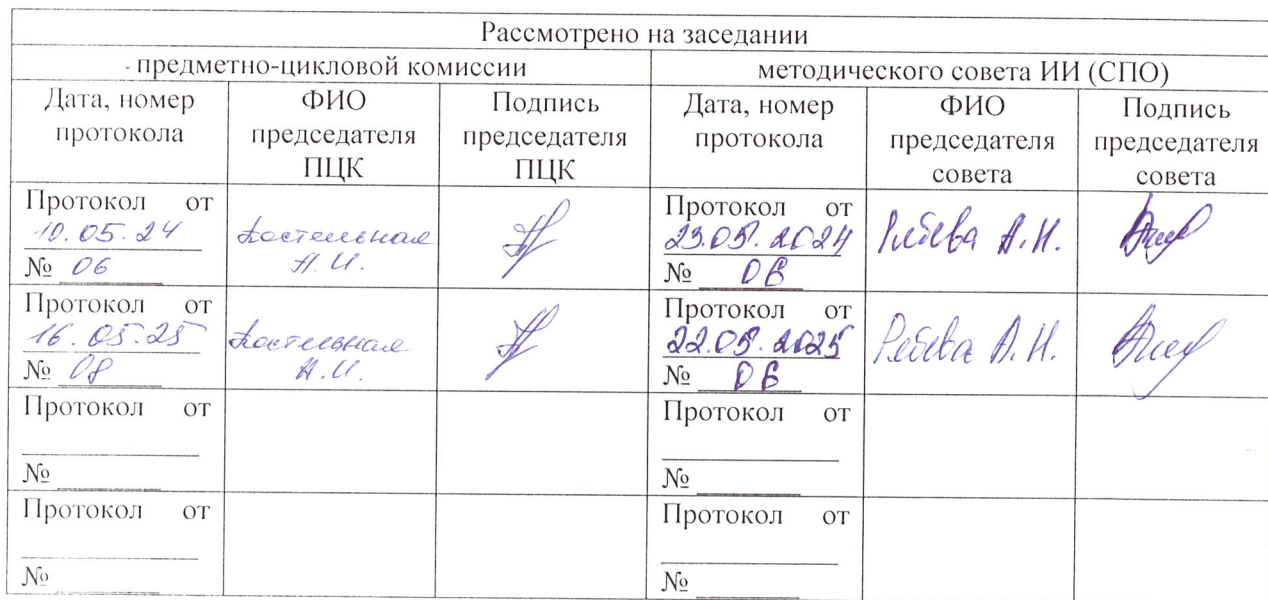 Рассмотрено на заседании
предметно-цикловой комиссии
методического совета ИИ (СПО)
Дата, номер протокола
ФИО председателя ПЦК
Подпись председателя ПЦК
Дата, номер протокола
ФИО председателя совета
Подпись председателя совета
Протокол от
10.05.24
№ 06
Костельная
Н.И.
Протокол от
23.05.2024
№ 06
А.Н.
Протокол от
16.05.25
№ 08
Костельная
Н.И.
Протокол от
22.05.2025
№ 06
А.Н.
Протокол от
№
Протокол от
№
Протокол от
№
Протокол от
№